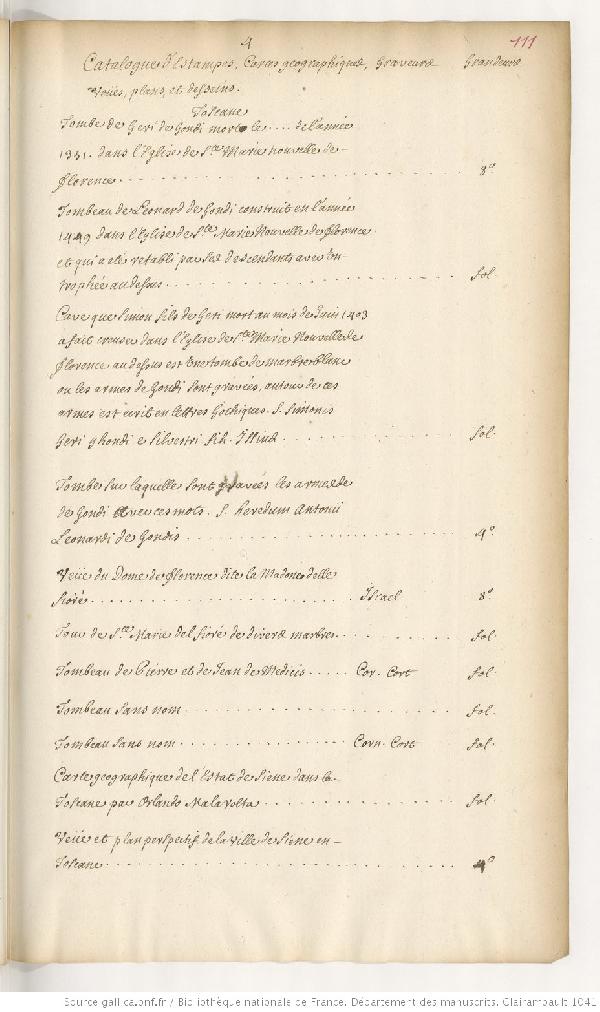 4
111
Catalogue d'Estampes, Cartes géographiques, Graveurs Grandeurs
Veües, plans, et desseins.
Toscane
Tombe de Geri de Gondi mort le .... de l'année
1331. dans l'Eglise de Ste Marie nouvelle de
Florence ........ 8°
Tombeau de Leonard de Gondi construit en l'année
1449 dans l'Eglise de Ste Marie Nouvelle de Florence
et qui a eté retabli par ses descendants avec un
trophée au dessus ........ fol.
Cave que Simon fils de Geri mort au mois de Juin 1403
a fait creuser dans l'Eglise de Ste Marie Nouvelle de
Florence au dessus est une tombe de marbre blanc
ou les armes de Gondi sont gravées, autour de ces
armes est ecrit en lettres Gothiques. S. Simonis
Geri ghondi e silvestri fil. ........ fol.
Tombe sur laquelle sont gravées les armes de
de Gondi avec ces mots. S. heredum Antonii
Leonardi de Gondis ........ 4°
Veüe du Dome de Florence dite la Madone delle
fioré ........ Israel 8°
Tour de Ste Marie del fioré de divers marbres ........ fol.
Tombeau de Pierre et de Jean de Medicis ..... Cor. Cort fol.
Tombeau sans nom ........ fol.
Tombeau sans nom ........ Corn. Cort fol.
Carte geographique de l'Estat de Siene dans la
Toscane par Orlando Malavolta ........ fol.
Veüe et plan perspectif de la ville de Siene en
Toscane ........ 4°
Source gallica.bnf.fr / Bibliothèque nationale de France. Département des manuscrits. Clairambault 1041